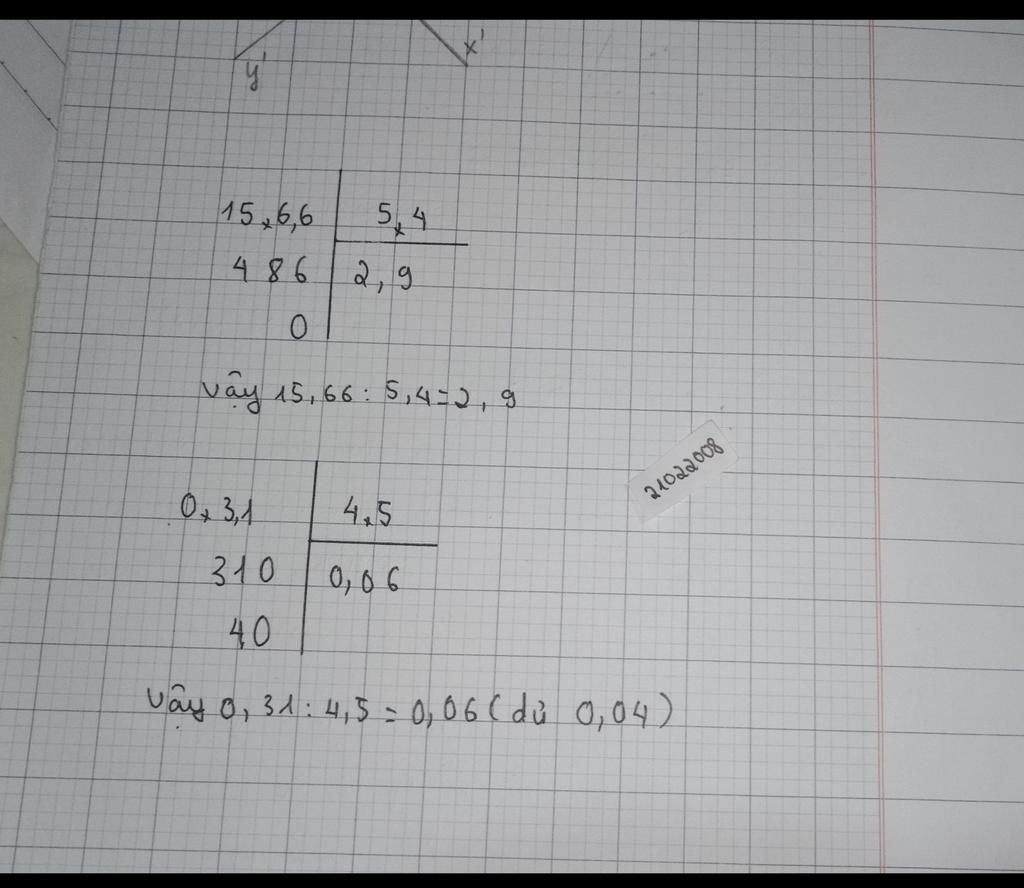 y' x'
15,6,6 5,4
486 2,9
0
Vậy 15,66 : 5,4 = 2,9
21022008
0,3,1 4,5
310 0,06
40
Vậy 0,31 : 4,5 = 0,06 (dư 0,04)